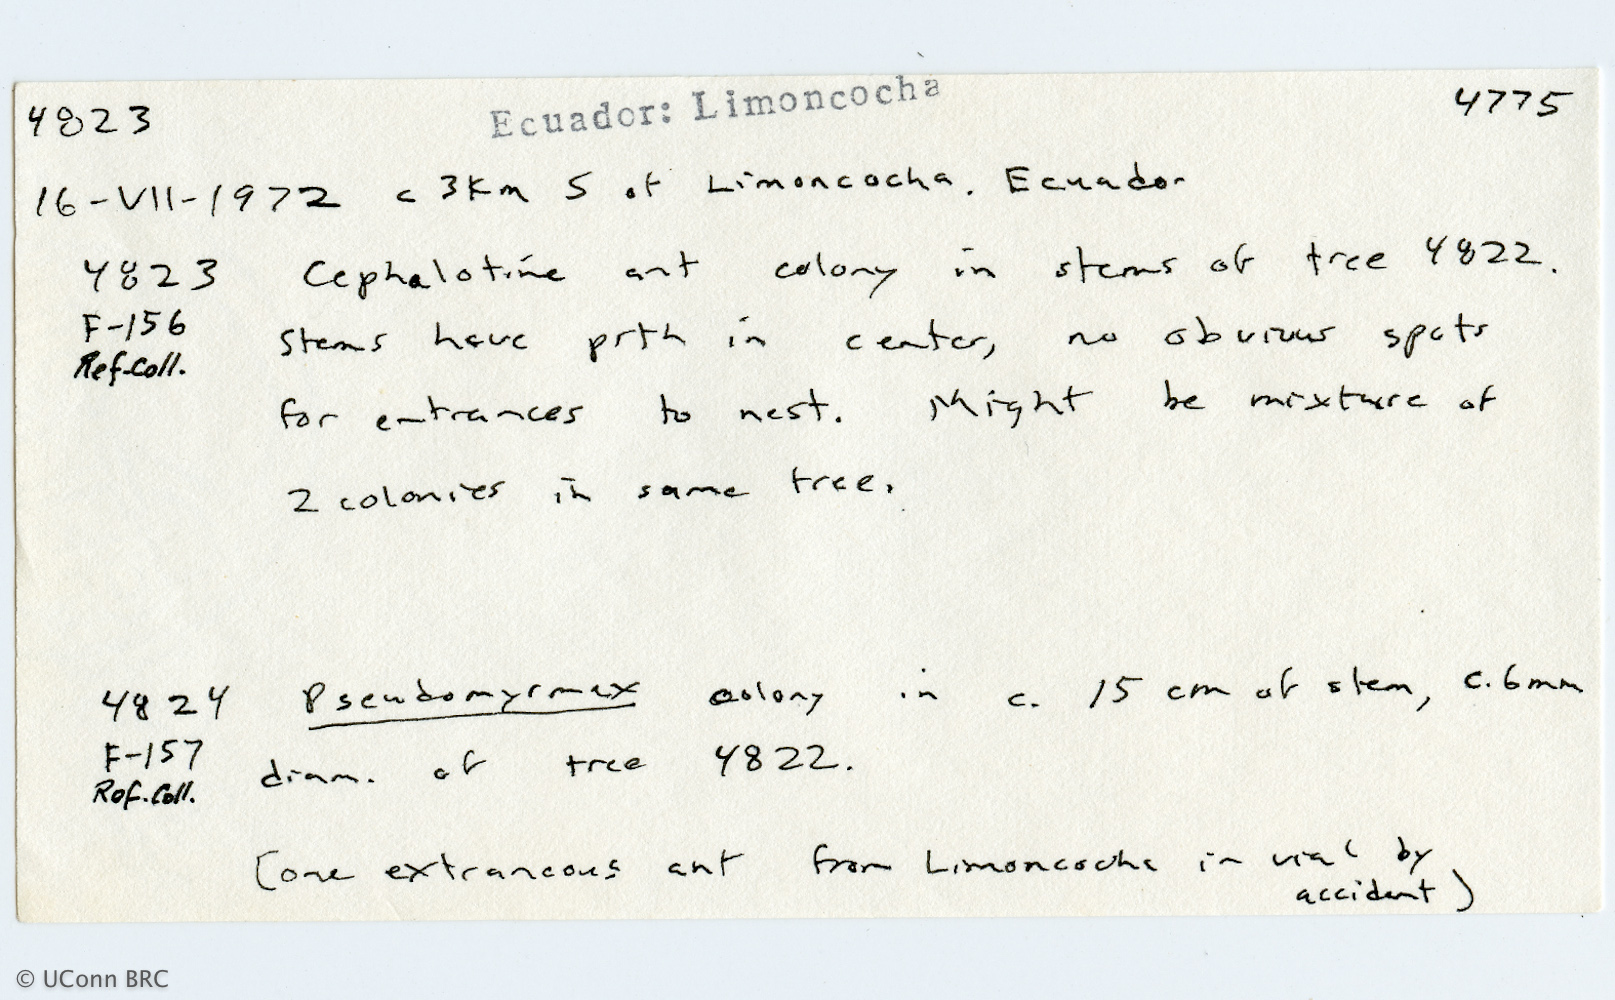 4823 Ecuador: Limoncocha 4775
16-VII-1972 c 3Km S of Limoncocha. Ecuador
4823 Cephalotine ant colony in stems of tree 4822.
F-156 Stems have pith in center, no obvious spots
Ref.Coll.
for entrances to nest. Might be mixture of
2 colonies in same tree.
4824 Pseudomyrmex colony in c. 15 cm of stem, c. 6mm
F-157 diam. of tree 4822.
Ref.Coll.
(one extraneous ant from Limoncocha in vial by
accident)
© UConn BRC